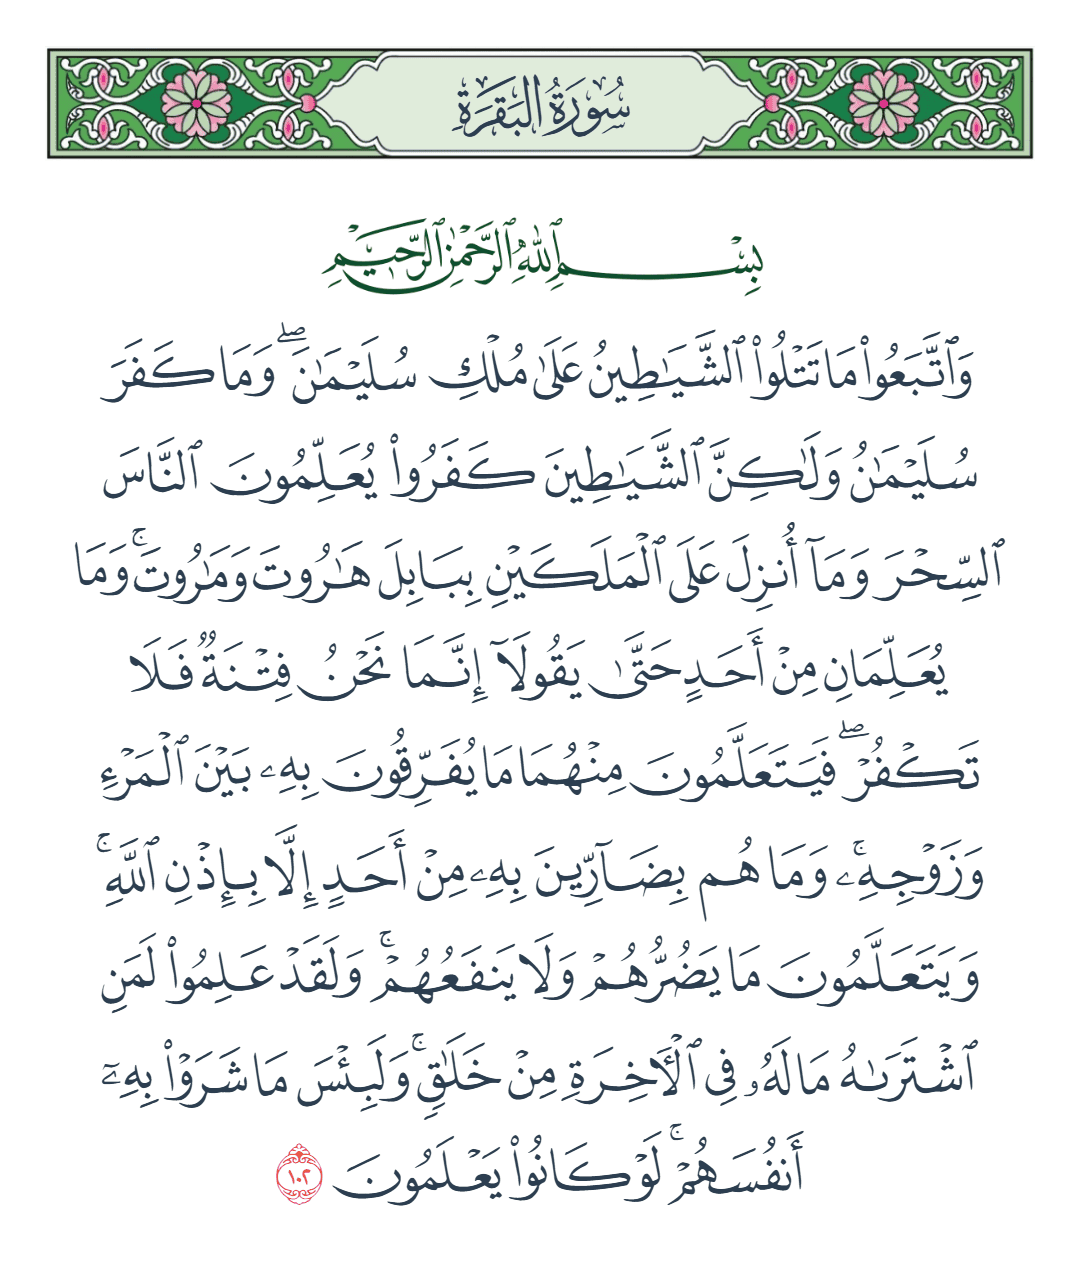 سُورَةُ البَقَرَةِ
بِسْمِ ٱللَّهِ ٱلرَّحْمَٰنِ ٱلرَّحِيمِ
وَٱتَّبَعُوا۟ مَا تَتْلُوا۟ ٱلشَّيَٰطِينُ عَلَىٰ مُلْكِ سُلَيْمَٰنَ ۖ وَمَا كَفَرَ
سُلَيْمَٰنُ وَلَٰكِنَّ ٱلشَّيَٰطِينَ كَفَرُوا۟ يُعَلِّمُونَ ٱلنَّاسَ
ٱلسِّحْرَ وَمَآ أُنزِلَ عَلَى ٱلْمَلَكَيْنِ بِبَابِلَ هَٰرُوتَ وَمَٰرُوتَ ۚ وَمَا
يُعَلِّمَانِ مِنْ أَحَدٍ حَتَّىٰ يَقُولَآ إِنَّمَا نَحْنُ فِتْنَةٌ فَلَا
تَكْفُرْ ۖ فَيَتَعَلَّمُونَ مِنْهُمَا مَا يُفَرِّقُونَ بِهِۦ بَيْنَ ٱلْمَرْءِ
وَزَوْجِهِۦ ۚ وَمَا هُم بِضَآرِّينَ بِهِۦ مِنْ أَحَدٍ إِلَّا بِإِذْنِ ٱللَّهِ ۚ
وَيَتَعَلَّمُونَ مَا يَضُرُّهُمْ وَلَا يَنفَعُهُمْ ۚ وَلَقَدْ عَلِمُوا۟ لَمَنِ
ٱشْتَرَىٰهُ مَا لَهُۥ فِى ٱلْءَاخِرَةِ مِنْ خَلَٰقٍ ۚ وَلَبِئْسَ مَا شَرَوْا۟ بِهِۦٓ
أَنفُسَهُمْ ۚ لَوْ كَانُوا۟ يَعْلَمُونَ ١٠٢